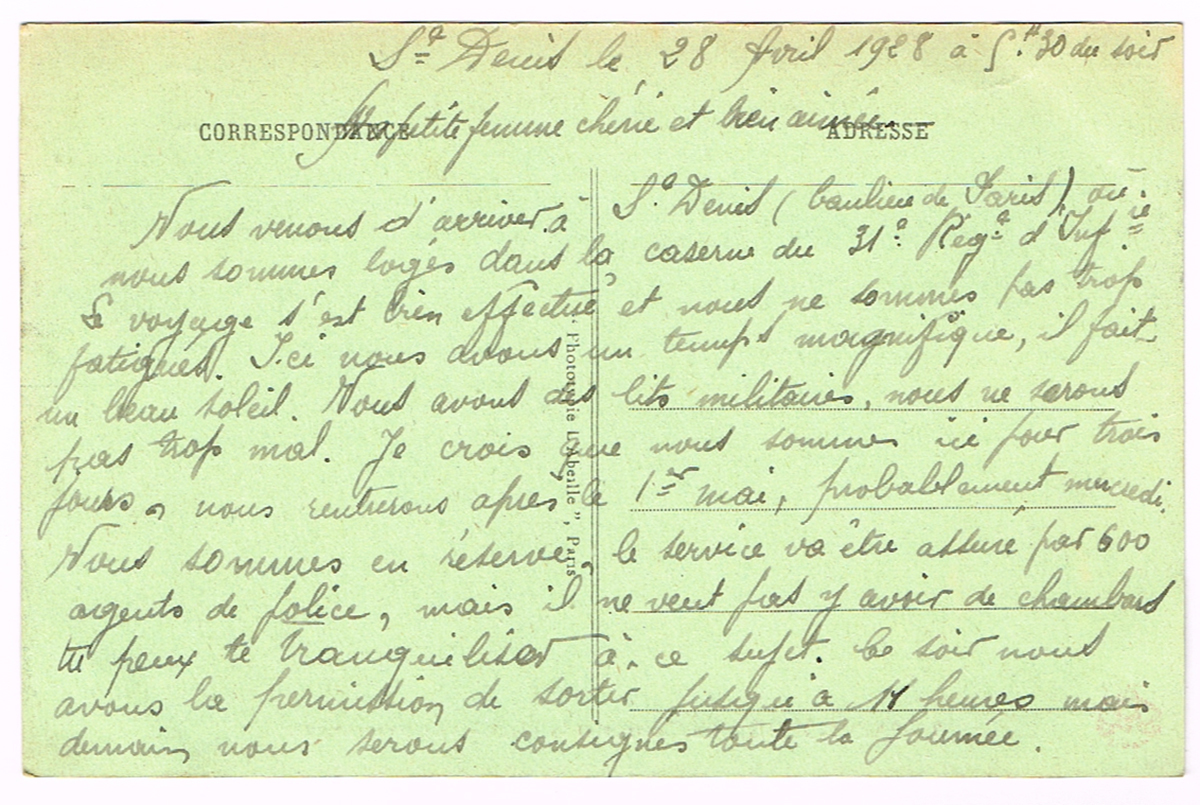 St Denis le 28 Avril 1928 à 5.H 30 du soir
Ma petite femme chérie et bien aimée.
CORRESPONDANCE
ADRESSE
Nous venons d'arriver à St. Denis (banlieue de Paris) où
nous sommes logés dans la caserne du 31e Régt d'Infrie
Le voyage s'est bien effectué et nous ne sommes pas trop
fatigués. Ici nous avons un temps magnifique, il fait
un beau soleil. Nous avons des lits militaires, nous ne serons
pas trop mal. Je crois que nous sommes ici pour trois
jours, nous rentrerons après le 1er mai, probablement mercredi.
Nous sommes en réserve, le service va être assuré par 600
agents de police, mais il ne veut pas y avoir de chambard
tu peux te tranquiliser à ce sujet. Ce soir nous
avons la permission de sortir jusqu'à heures mais
demain nous serons consignés toute la journée.
Phototypie L'Abeille", Paris